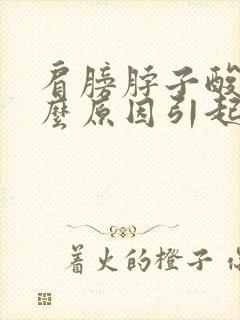 肩膀脖子酸
麼原因引起
着火的橙子